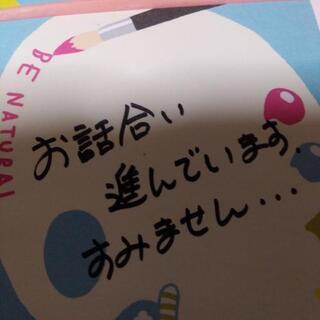 BE NATURAL
お話合い
進んでいます.
すみません...